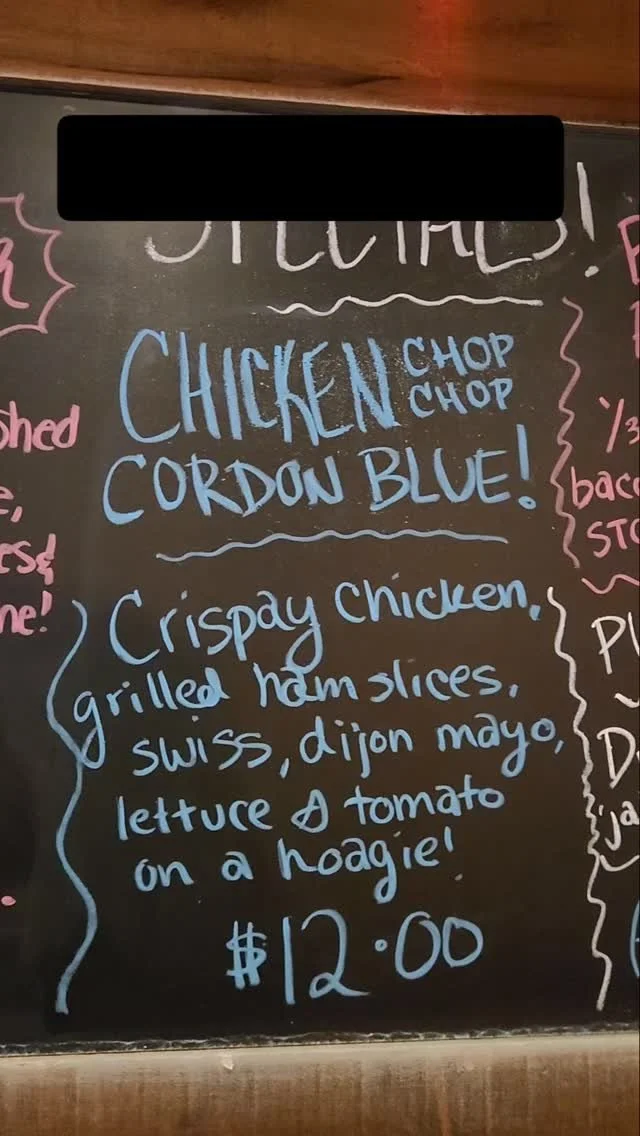 SPECIALS!
CHICKEN CHOP CHOP
CORDON BLUE!
Crispay chicken,
grilled ham slices,
swiss, dijon mayo,
lettuce & tomato
on a hoagie!
$12.00